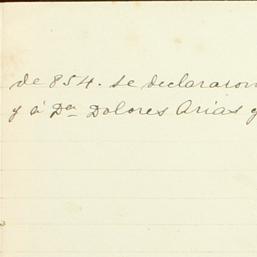 de 854. se declararon
y á Dª Dolores Arias y